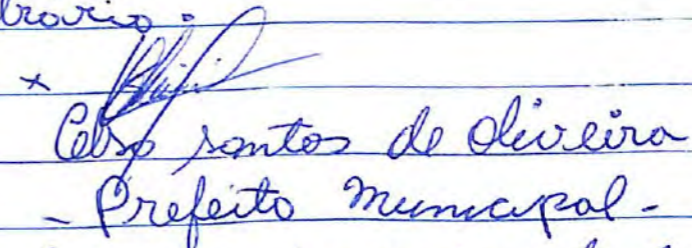 trario.
x
Celso santos de Oliveira
- Prefeito Municipal -